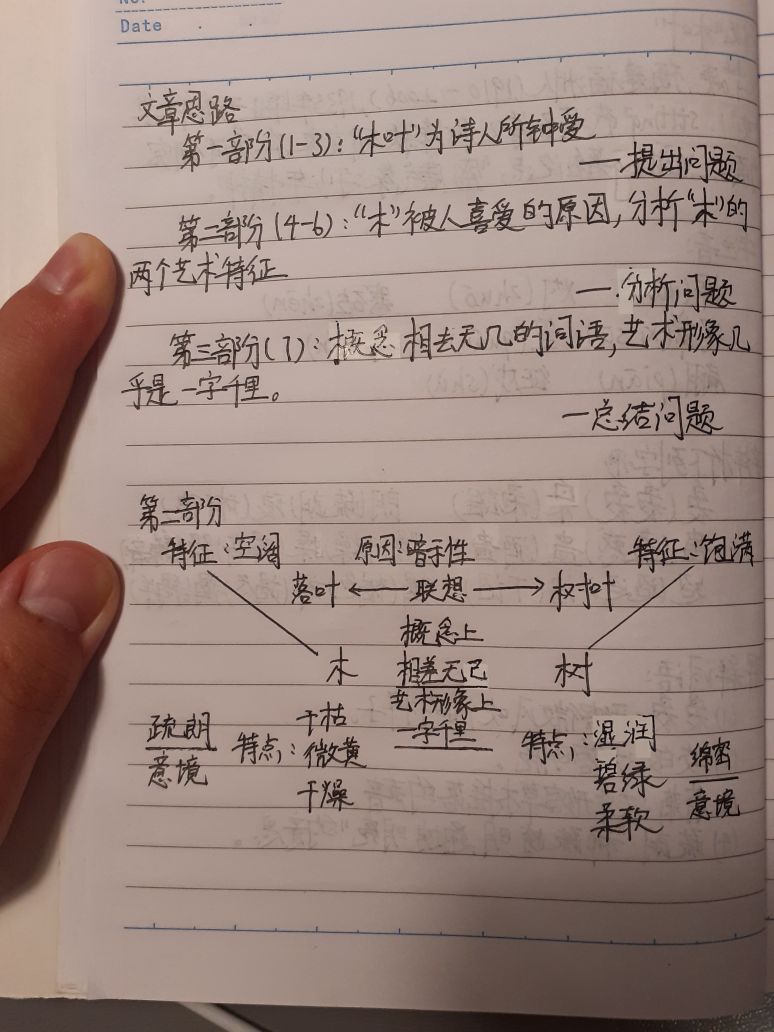 No.
Date
文章思路
第一部分(1-3)：“木叶”为诗人所钟爱
——提出问题
第二部分(4-6)：“木”被人喜爱的原因，分析“木”的
两个艺术特征
——分析问题
第三部分(7)：概念相去无几的词语，艺术形象几
乎是一字千里。
—总结问题
第二部分
特征：空阔 原因：暗示性 特征：饱满
落叶 ← 联想 → 树叶
概念上
木 相差无己 树
艺术形象上
一字千里
疏朗 意境 特点：干枯 微黄 干燥
特点：湿润 碧绿 柔软 绵密 意境